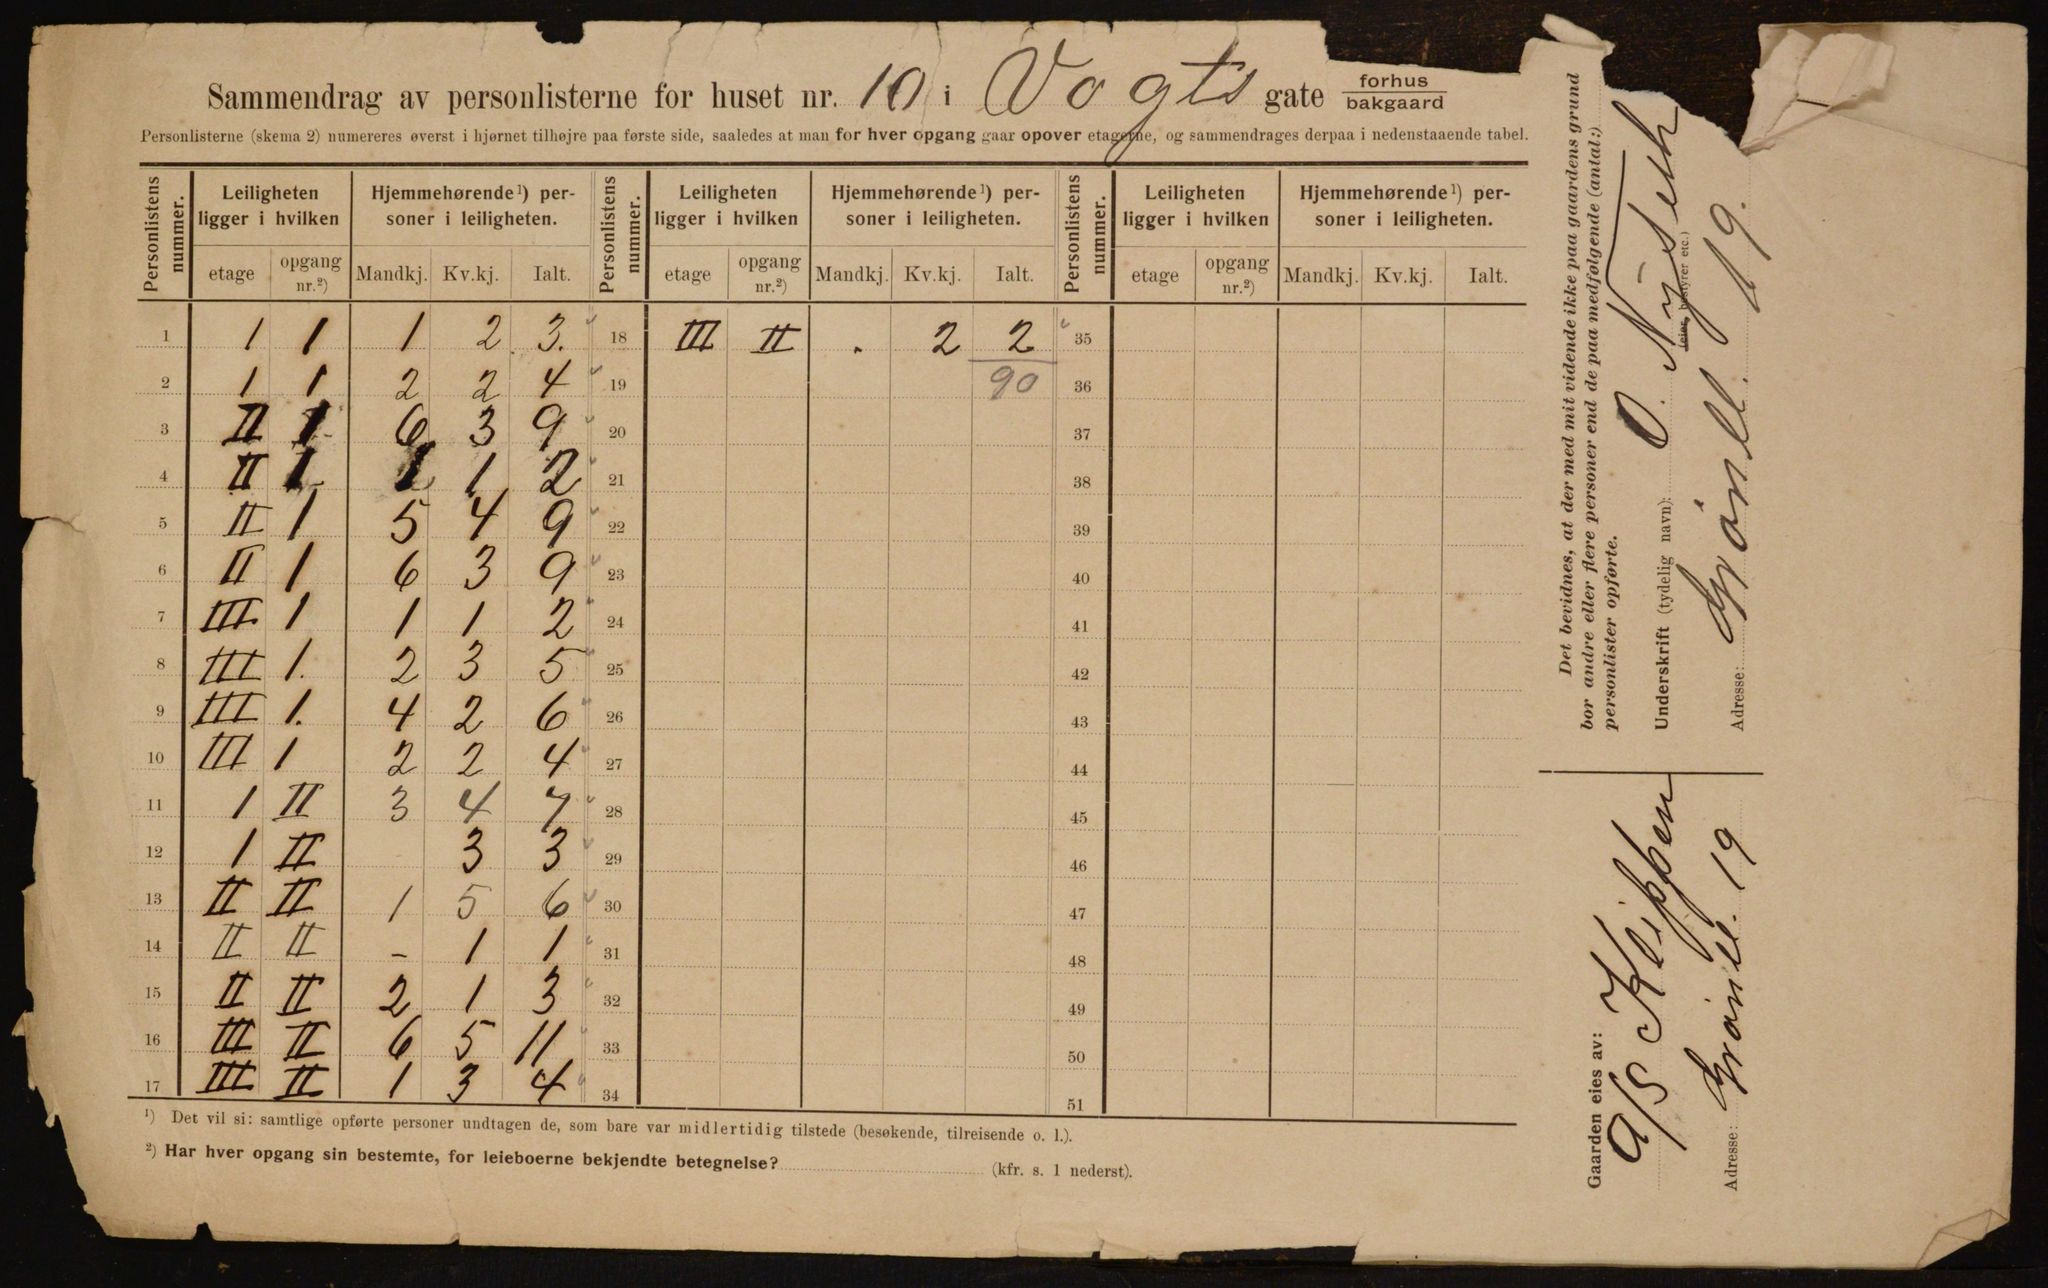 Sammendrag av personlisterne for huset nr. 10 i Vogts gate forhus bakgaard
Personlisterne (skema 2) numereres øverst i hjørnet tilhøjre paa første side, saaledes at man for hver opgang gaar opover etagerne, og sammendrages derpaa i nedenstaaende tabel.
Personlistens nummer. Leiligheten ligger i hvilken Hjemmehørende¹) personer i leiligheten. Personlistens nummer. Leiligheten ligger i hvilken Hjemmehørende¹) personer i leiligheten. Personlistens nummer. Leiligheten ligger i hvilken Hjemmehørende¹) personer i leiligheten.
etage opgang nr.²) Mandkj. Kv.kj. Ialt. etage opgang nr.²) Mandkj. Kv.kj. Ialt. etage opgang nr.²) Mandkj. Kv.kj. Ialt.
1 1 1 1 2 3. 18 III II . 2 2 35
2 1 1 2 2 4 19 90 36
3 II 1 6 3 9 20 37
4 II 1 1 1 2 21 38
5 II 1 5 4 9 22 39
6 II 1 6 3 9 23 40
7 III 1 1 1 2 24 41
8 III 1. 2 3 5 25 42
9 III 1. 4 2 6 26 43
10 III 1 2 2 4 27 44
11 1 II 3 4 7 28 45
12 1 II 3 3 29 46
13 II II 1 5 6 30 47
14 II II - 1 1 31 48
15 II II 2 1 3 32 49
16 III II 6 5 11 33 50
17 III II 1 3 4 34 51
¹) Det vil si: samtlige opførte personer undtagen de, som bare var midlertidig tilstede (besøkende, tilreisende o. l.).
²) Har hver opgang sin bestemte, for leieboerne bekjendte betegnelse? (kfr. s. 1 nederst).
Det bevidnes, at der med mit vidende ikke paa gaardens grund
bor andre eller flere personer end de paa medfølgende (antal:)
personlister opførte.
Underskrift (tydelig navn): O. Nyseth
(eier, bestyrer etc.)
Adresse: Grønll. 19.
Gaarden eies av:
A/S Kleippen
Adresse: Grønll. 19